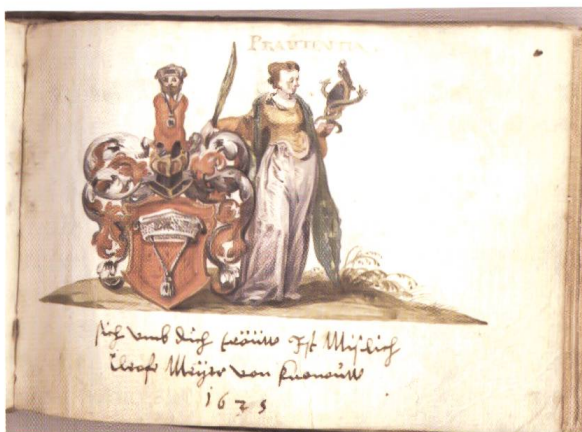 PRAUTENTIA
sich vmb dich tröüw Ist Mißlich
Cleofe Meÿer von Knonouw
1623